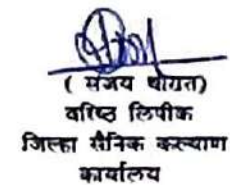 ( संजय थोरात)
वरिष्ठ लिपीक
जिल्हा सैनिक कल्याण
कार्यालय